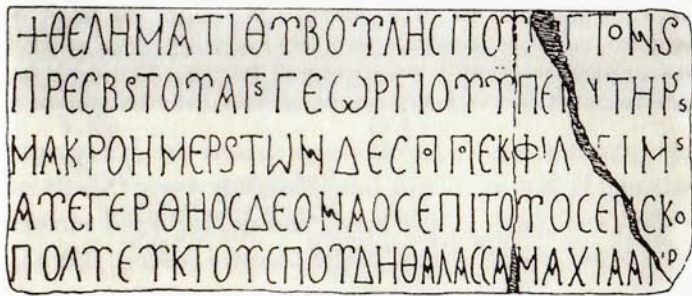 +ΘΕΛΗΜΑΤΙΘΥΒΟΥΛΗCΙΤΟΥ ΓΤΟΝS
ΠΡΕCΒSΤΟΥΑΓSΓΕΩΡΓΙΟΥΥΠΕΡ ΥΤΗΡSS
ΜΑΚΡΟΗΜΕΡSΤΩΝΔΕCΠΟΠΕΚΦΙΛ ΓΙΜS
ΑΥΕΓΕΡΘΗΟCΔΕΟΝΑΟCΕΠΙΤΟΥΟCΕΠΙCΚΟ
ΠΟΛΥΕΥΚΤΟΥCΠΟΥΔΗΘΑΛΑCCΑΜΑΧΙΑΑ